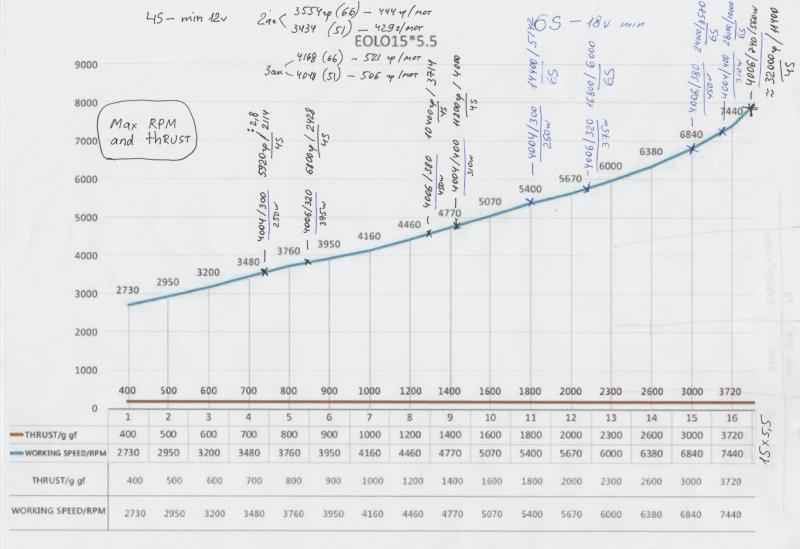 4S – min 12v
2ак
3554гр (66) – 444гр/мот
3434 (51) – 429г/мот
3ак
4168 (66) – 521 гр/мот
4048 (51) – 506 гр/мот
6S – 18v min
EOLO15*5.5
Max RPM
and thRUST
9000
8000
7000
6000
5000
4000
3000
2000
1000
0
4004/300
250w
5920гр/2114
4S
4006/320
375w
6800гр/2428
4S
4006/380
450w
10400гр/3714
4S
4004/400
310w
11200гр/4000
4S
4004/300
250w
14400/5142
6S
4006/320
375w
16800/6000
6S
4006/380
450w
6S
4004/400
310w
6S
4006/740/560w
≈32000гр/11400
4S
2730 2950 3200 3480 3760 3950 4160 4460 4770 5070 5400 5670 6000 6380 6840 7440
400 500 600 700 800 900 1000 1200 1400 1600 1800 2000 2300 2600 3000 3720
1 2 3 4 5 6 7 8 9 10 11 12 13 14 15 16
THRUST/g gf 400 500 600 700 800 900 1000 1200 1400 1600 1800 2000 2300 2600 3000 3720
WORKING SPEED/RPM 2730 2950 3200 3480 3760 3950 4160 4460 4770 5070 5400 5670 6000 6380 6840 7440
THRUST/g gf 400 500 600 700 800 900 1000 1200 1400 1600 1800 2000 2300 2600 3000 3720
WORKING SPEED/RPM 2730 2950 3200 3480 3760 3950 4160 4460 4770 5070 5400 5670 6000 6380 6840 7440
15x5,5